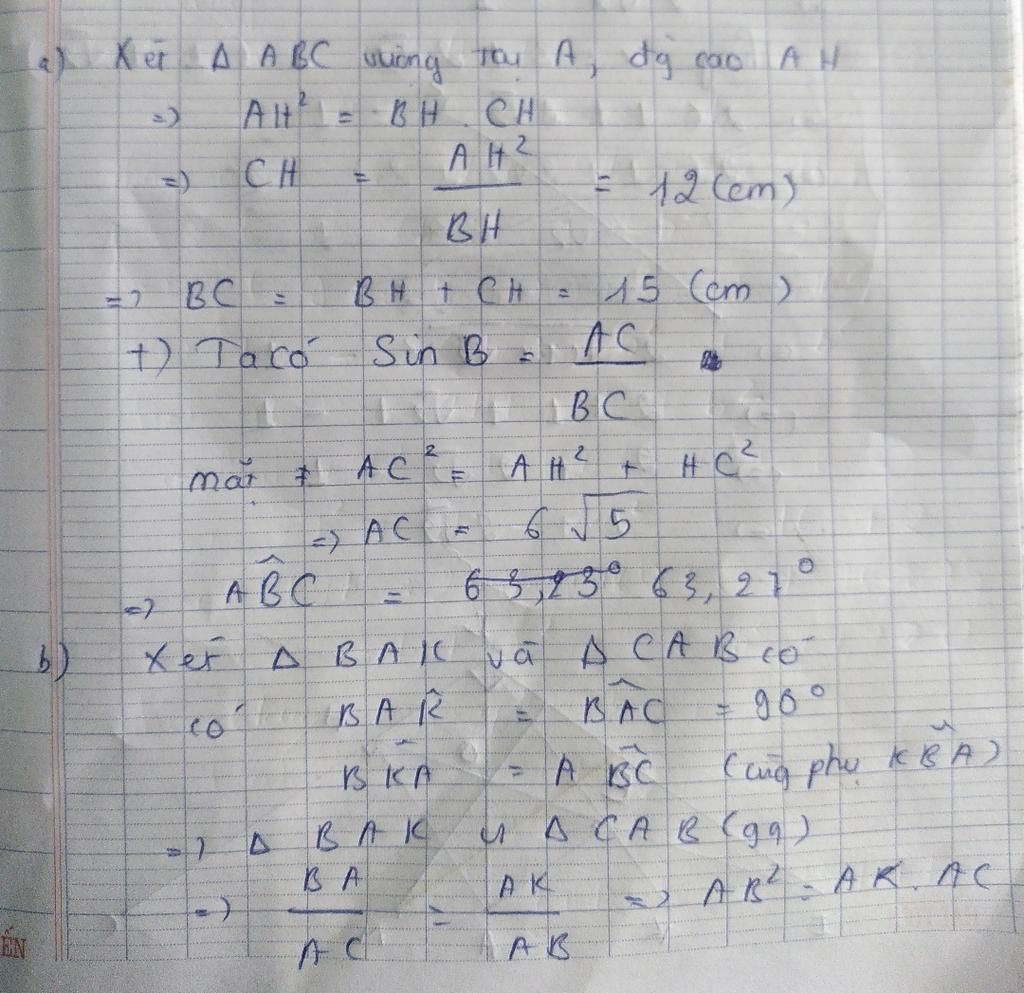 a) Xét Δ ABC vuông tại A, đg cao AH
=> AH² = BH . CH
=> CH = AH² / BH = 12 (cm)
=> BC = BH + CH = 15 (cm)
+) Ta có Sin B = AC / BC
mặt ≠ AC² = AH² + HC²
=> AC = 6√5
=> AB̂C = 63,23° 63,27°
b) Xét Δ BAK và Δ CAB có
có BAK̂ = BÂC = 90°
BK̂A = AB̂C (cùg phụ KB̂A)
=> Δ BAK ∽ Δ CAB (gg)
=> BA / AC = AK / AB => AB² = AK . AC
ẾN